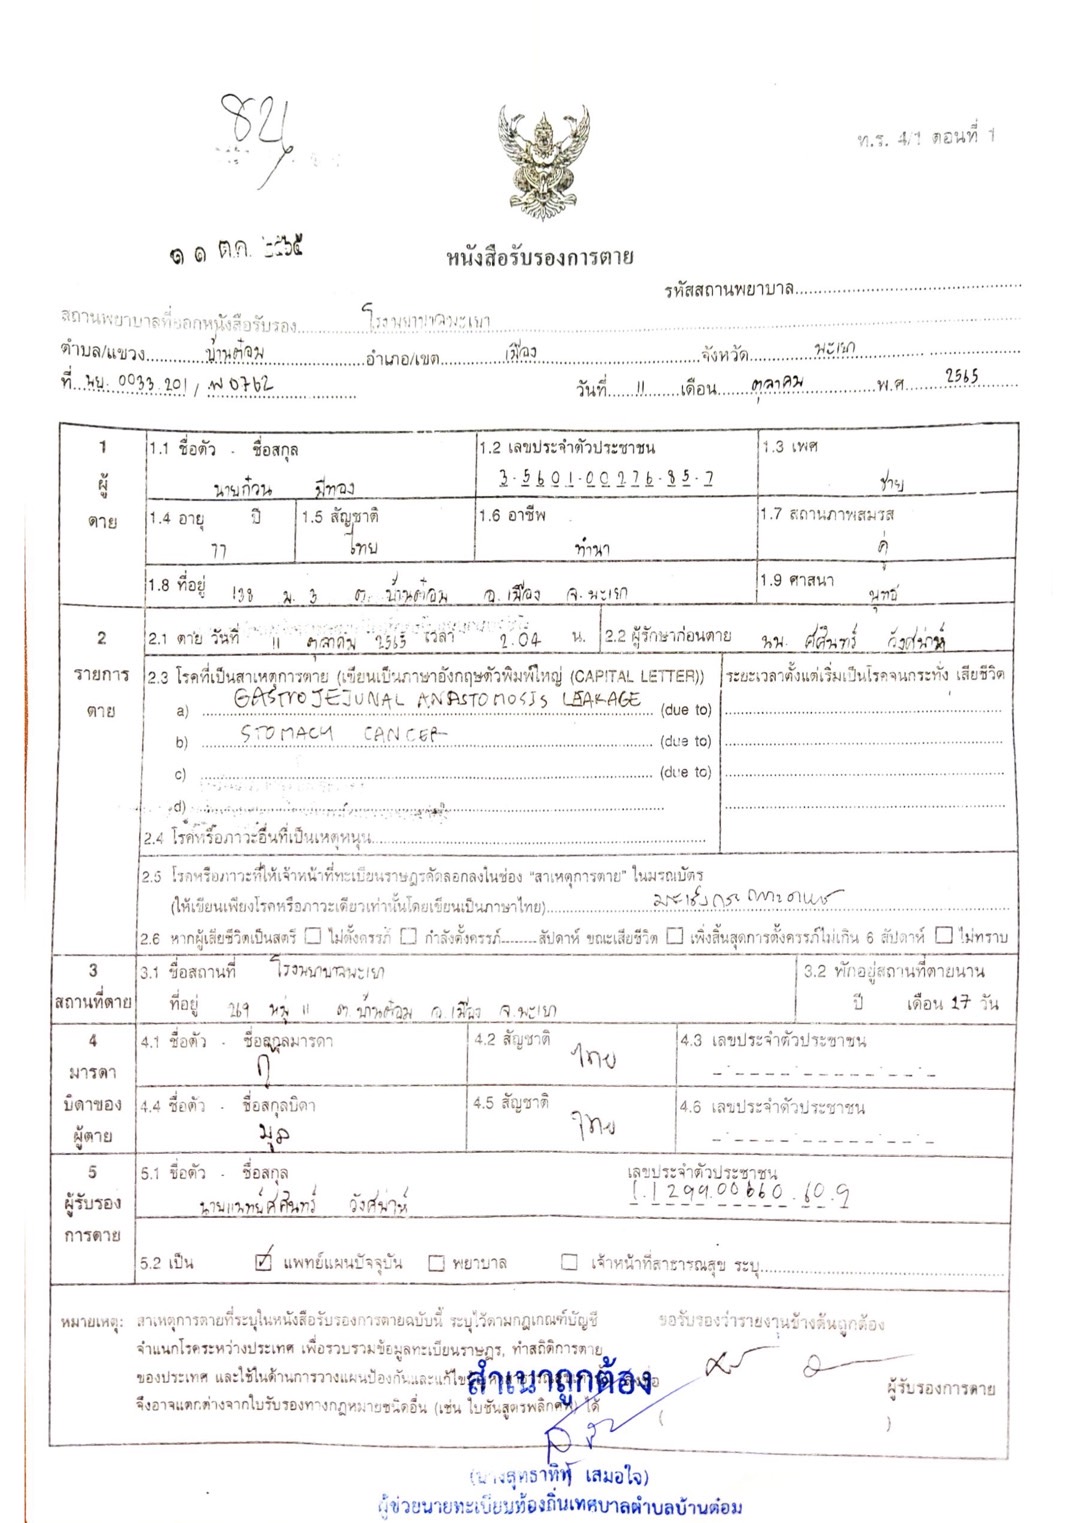 ท.ร. 4/1 ตอนที่ 1
๑๑ ต.ค. ๒๕๖๕
หนังสือรับรองการตาย
รหัสสถานพยาบาล
สถานพยาบาลที่ออกหนังสือรับรอง โรงพยาบาลพะเยา
ตำบล/แขวง บ้านต๋อม อำเภอ/เขต เมือง จังหวัด พะเยา
ที่ พย. 0033.201 / พ0762 วันที่ 11 เดือน ตุลาคม พ.ศ. 2565
1 ผู้ตาย
1.1 ชื่อตัว - ชื่อสกุล นายก๋วน มีทอง
1.2 เลขประจำตัวประชาชน 3-5601-00276-85-7
1.3 เพศ ชาย
1.4 อายุ 77 ปี
1.5 สัญชาติ ไทย
1.6 อาชีพ ทำนา
1.7 สถานภาพสมรส คู่
1.8 ที่อยู่ 138 ม. 3 ต. บ้านต๋อม อ. เมือง จ. พะเยา
1.9 ศาสนา พุทธ
2 รายการตาย
2.1 ตาย วันที่ 11 ตุลาคม 2565 เวลา 2.04 น.
2.2 ผู้รักษาก่อนตาย นพ. ศศินทร์ วังศพ่าห์
2.3 โรคที่เป็นสาเหตุการตาย (เขียนเป็นภาษาอังกฤษตัวพิมพ์ใหญ่ (CAPITAL LETTER))
ระยะเวลาตั้งแต่เริ่มเป็นโรคจนกระทั่ง เสียชีวิต
a) GASTROJEJUNAL ANASTOMOSIS LEAKAGE (due to)
b) STOMACH CANCER (due to)
c) (due to)
d)
2.4 โรคหรือภาวะอื่นที่เป็นเหตุหนุน
2.5 โรคหรือภาวะที่ให้เจ้าหน้าที่ทะเบียนราษฎรคัดลอกลงในช่อง "สาเหตุการตาย" ในมรณบัตร
(ให้เขียนเพียงโรคหรือภาวะเดียวเท่านั้นโดยเขียนเป็นภาษาไทย) มะเร็งกระเพาะอาหาร
2.6 หากผู้เสียชีวิตเป็นสตรี ☐ ไม่ตั้งครรภ์ ☐ กำลังตั้งครรภ์........สัปดาห์ ขณะเสียชีวิต ☐ เพิ่งสิ้นสุดการตั้งครรภ์ไม่เกิน 6 สัปดาห์ ☐ ไม่ทราบ
3 สถานที่ตาย
3.1 ชื่อสถานที่ โรงพยาบาลพะเยา
ที่อยู่ 269 หมู่ 11 ต. บ้านต๋อม อ. เมือง จ. พะเยา
3.2 พักอยู่สถานที่ตายนาน
ปี เดือน 17 วัน
4 มารดา บิดาของผู้ตาย
4.1 ชื่อตัว - ชื่อสกุลมารดา
4.2 สัญชาติ ไทย
4.3 เลขประจำตัวประชาชน
4.4 ชื่อตัว - ชื่อสกุลบิดา มูล
4.5 สัญชาติ ไทย
4.6 เลขประจำตัวประชาชน
5 ผู้รับรองการตาย
5.1 ชื่อตัว - ชื่อสกุล นายแพทย์ศศินทร์ วังศพ่าห์
เลขประจำตัวประชาชน 1-1299-00660-60-9
5.2 เป็น ☑ แพทย์แผนปัจจุบัน ☐ พยาบาล ☐ เจ้าหน้าที่สาธารณสุข ระบุ
หมายเหตุ: สาเหตุการตายที่ระบุในหนังสือรับรองการตายฉบับนี้ ระบุไว้ตามกฎเกณฑ์บัญชี
จำแนกโรคระหว่างประเทศ เพื่อรวบรวมข้อมูลทะเบียนราษฎร, ทำสถิติการตาย
ของประเทศ และใช้ในด้านการวางแผนป้องกันและแก้ไข
จึงอาจแตกต่างจากใบรับรองทางกฎหมายชนิดอื่น (เช่น ใบชันสูตรพลิกศพ) ได้
ขอรับรองว่ารายงานข้างต้นถูกต้อง
ผู้รับรองการตาย
( )
สำเนาถูกต้อง
(นางสุทธาทิพ์ เสมอใจ)
ผู้ช่วยนายทะเบียนท้องถิ่นเทศบาลตำบลบ้านต๋อม